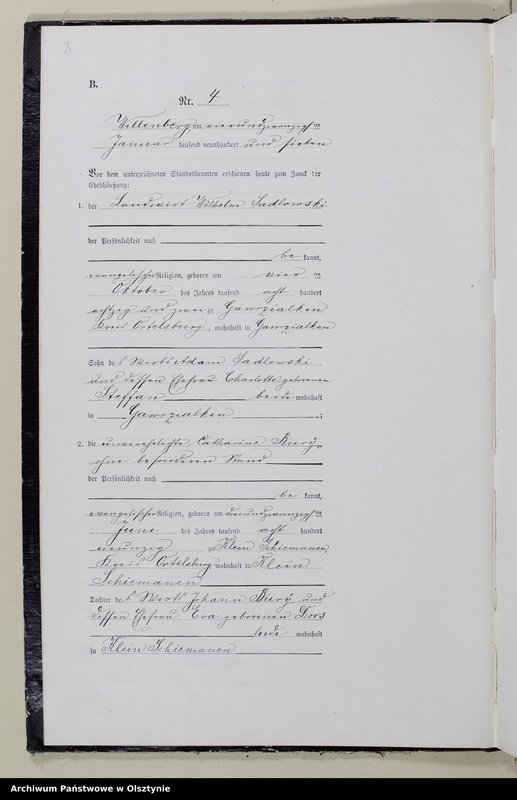 8
B.
Nr. 4
Willenberg am vierundzwanzigsten
Januar tausend neunhundert und sieben
Vor dem unterzeichneten Standesbeamten erschienen heute zum Zweck der
Eheschließung:
1. der Landwirt Wilhelm Sadlowski
der Persönlichkeit nach
be kannt,
evangelischer Religion, geboren am vier ten
Oktober des Jahres tausend acht hundert
achtzig und zwei zu Gawrzialken
Kreis Ortelsburg, wohnhaft in Gawrzialken
Sohn des Wirts Adam Sadlowski
und dessen Ehefrau Charlotte geborenen
Steffan beide wohnhaft
in Gawrzialken ;
2. die unverehelichte Catharine
ohne besonderen Stand
der Persönlichkeit nach
be kannt,
evangelischer Religion, geboren am dreiundzwanzigsten
Juni des Jahres tausend acht hundert
neunzig zu Klein Schiemanen
Kreis Ortelsburg wohnhaft in Klein
Schiemanen
Tochter des Wirts Johann und
dessen Ehefrau Eva geborenen
beide wohnhaft
in Klein Schiemanen
Archiwum Państwowe w Olsztynie